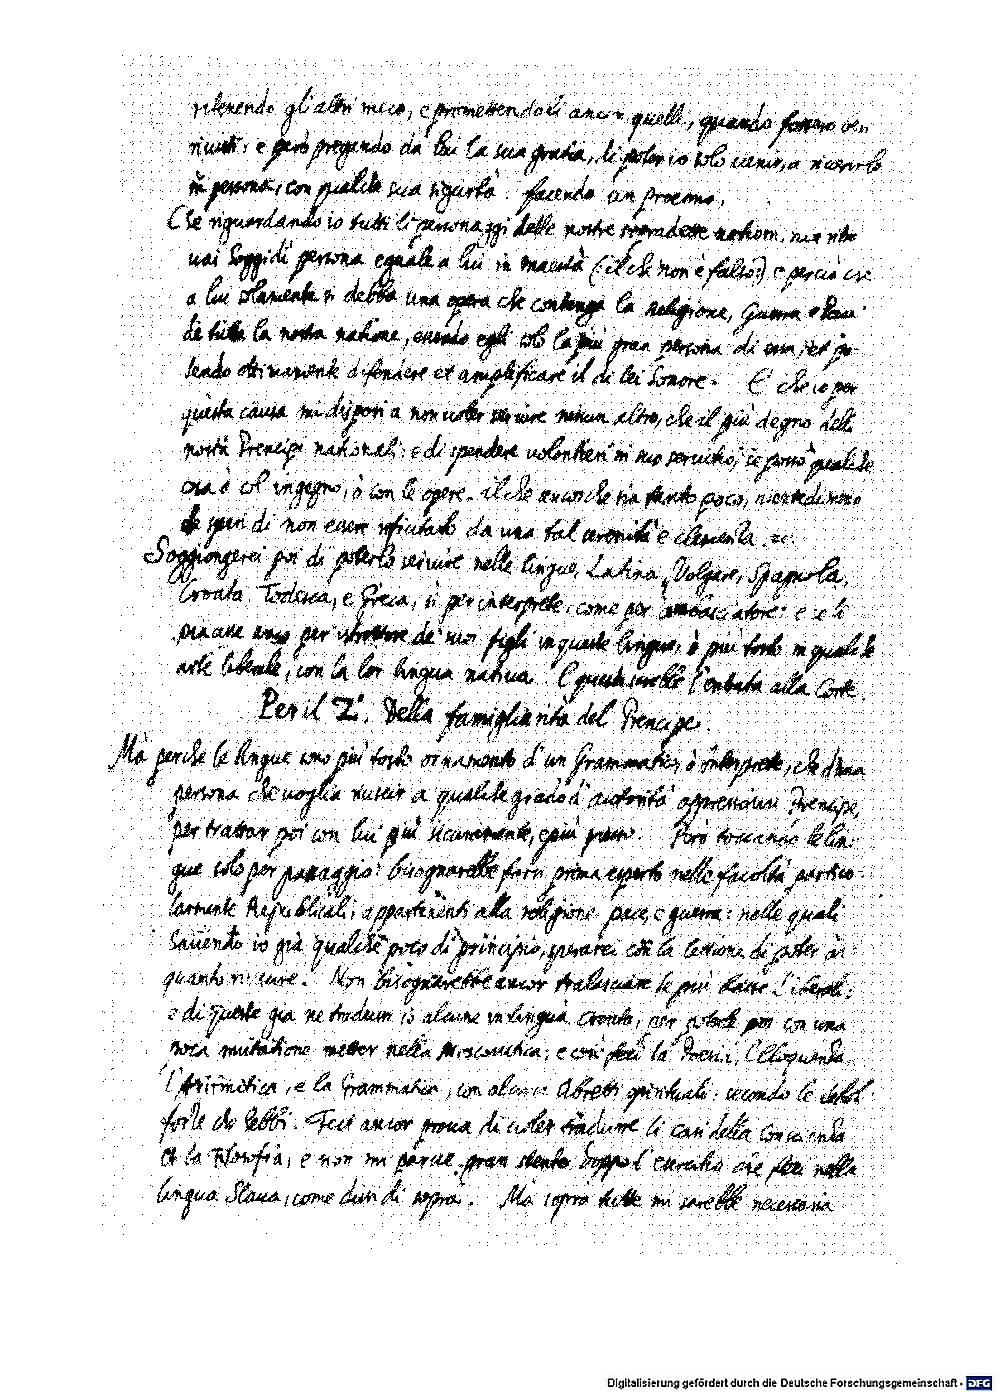 ritenendo gli altri meco, e promettendoli ancor quelli, quando fossero ben
riusciti: e però pregando da lui la sua gratia, di poter io solo venir, a riverirlo
in persona, con qualche sua sigurtà. facendo un proemio,
Che riguardando io tutti li personaggi delle nostre sopradette nationi, non ritro
vai Soggidì persona eguale a lui in maestà (il che non è falso) e perciò che
a lui solamente si debba una opera che contenga la religione, Guerra e Pace
de tutta la nostra natione, essendo egli solo la più gran persona di essa, et po-
tendo ottimamente difendere et amplificare il di lei honore. E che io per
questa causa mi disposi a non voler servire nessun altro, che il più degno delli
nostri Prencipi nationali: e di spendere volontieri in suo servitio, se posso qualche
cosa ò col ingegno, ò con le opere. il che ancor che sia tanto poco, nientedimeno
che speri di non essere rifiutato da una tal serenità e clemenza.
Soggiongerei poi di poterlo servire nelle lingue, Latina, Volgare, Spagnola,
Croata, Todesca, e Greca, sì per interprete, come per ambasciatore: e se li
piacesse anco per istruttore de' suoi figli in queste lingue, ò più tosto in qualche
arte liberale, con la lor lingua nativa. E questa sarebbe l'entrata alla Corte.
Per il 2°. Della famigliarità del Prencipe.
Mà perche le lingue sono più tosto ornamento d'un Grammatico, ò interprete, che d'una
persona che voglia riuscir a qualche grado d'autorità appresso un Prencipe,
per trattar poi con lui più sicuramente, e più presto. Però toccando le lin-
gue solo per passaggio: bisognarebbe farsi prima esperto nelle facoltà partico-
larmente Republicali, appartenenti alla religione, pace, e guerra: nelle quali
havendo io già qualche poco di principio, sperarei con la lettione di poter al
quanto riuscire. Non bisognarebbe ancor tralasciare le più basse Liberali:
e di queste già ne tradussi io alcune in lingua Croata, per poterle poi con una
poca mutatione metter nella Moscovitica, e così feci la Poesia, l'Eloquenza,
l'Aritmetica, e la Grammatica, con alcuni libretti spirituali: secondo le deboli
forze che hebbi. Feci ancor prova di voler tradurre li casi della Conscienza
et la Filosofia, e non mi parve gran stento doppo l'esercitio che feci nella
lingua Slava, come dissi di sopra. Mà sopra tutte mi sarebbe necessaria
Digitalisierung gefördert durch die Deutsche Forschungsgemeinschaft - DFG